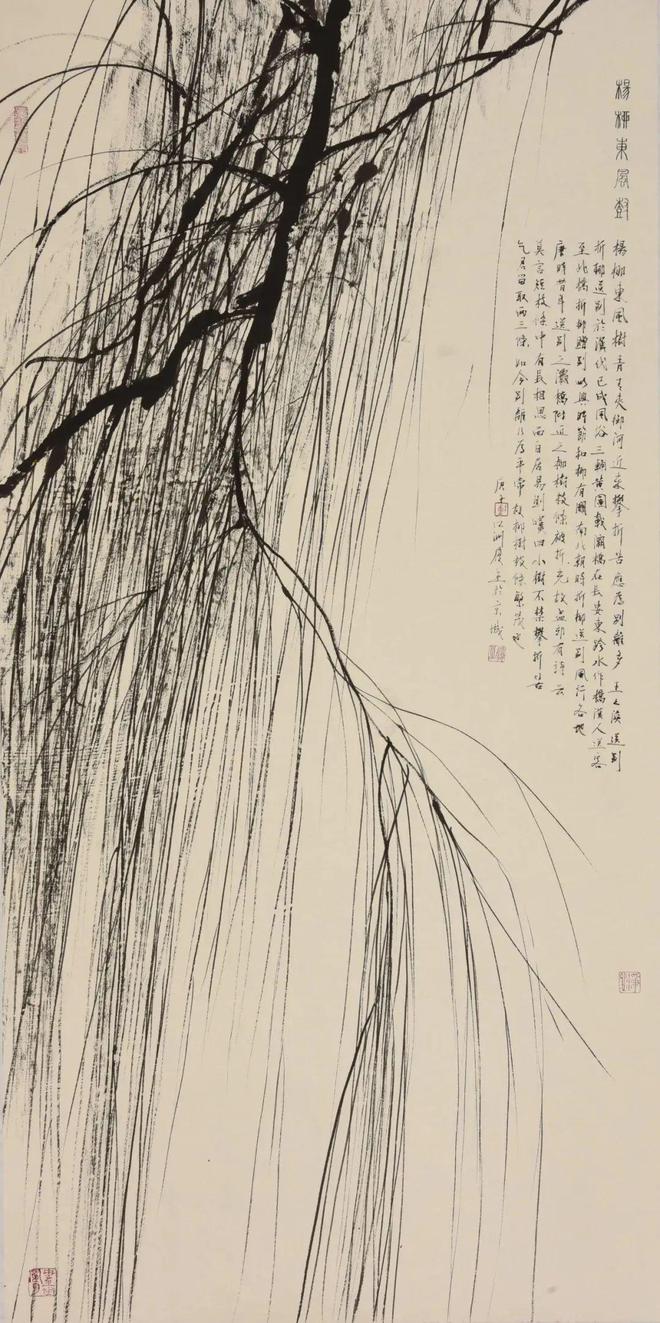 楊柳東風樹
楊柳東風樹青青夾御河近來攀折苦應為別離多 王之渙送別
折柳送別於漢代已成風俗三輔黃圖載灞橋在長安東跨水作橋漢人送客
至此橋折柳贈別此與時節和柳有關南北朝時折柳送別風行各地
唐時昔年送別之灞橋附近之柳樹枝條被折光故孟郊有詩云
莫言短枝條中有長相思而白居易則嘆曰小樹不禁攀折苦
乞君留取兩三條如今別離以為平常故柳樹枝條繁茂也
於京城